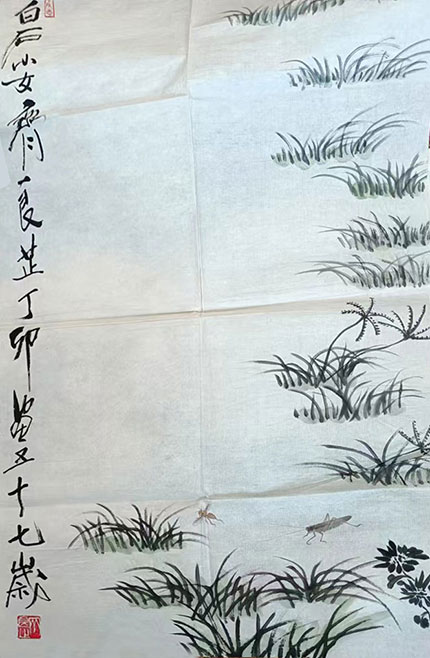 白石小女齊良芷丁卯畫五十七歲